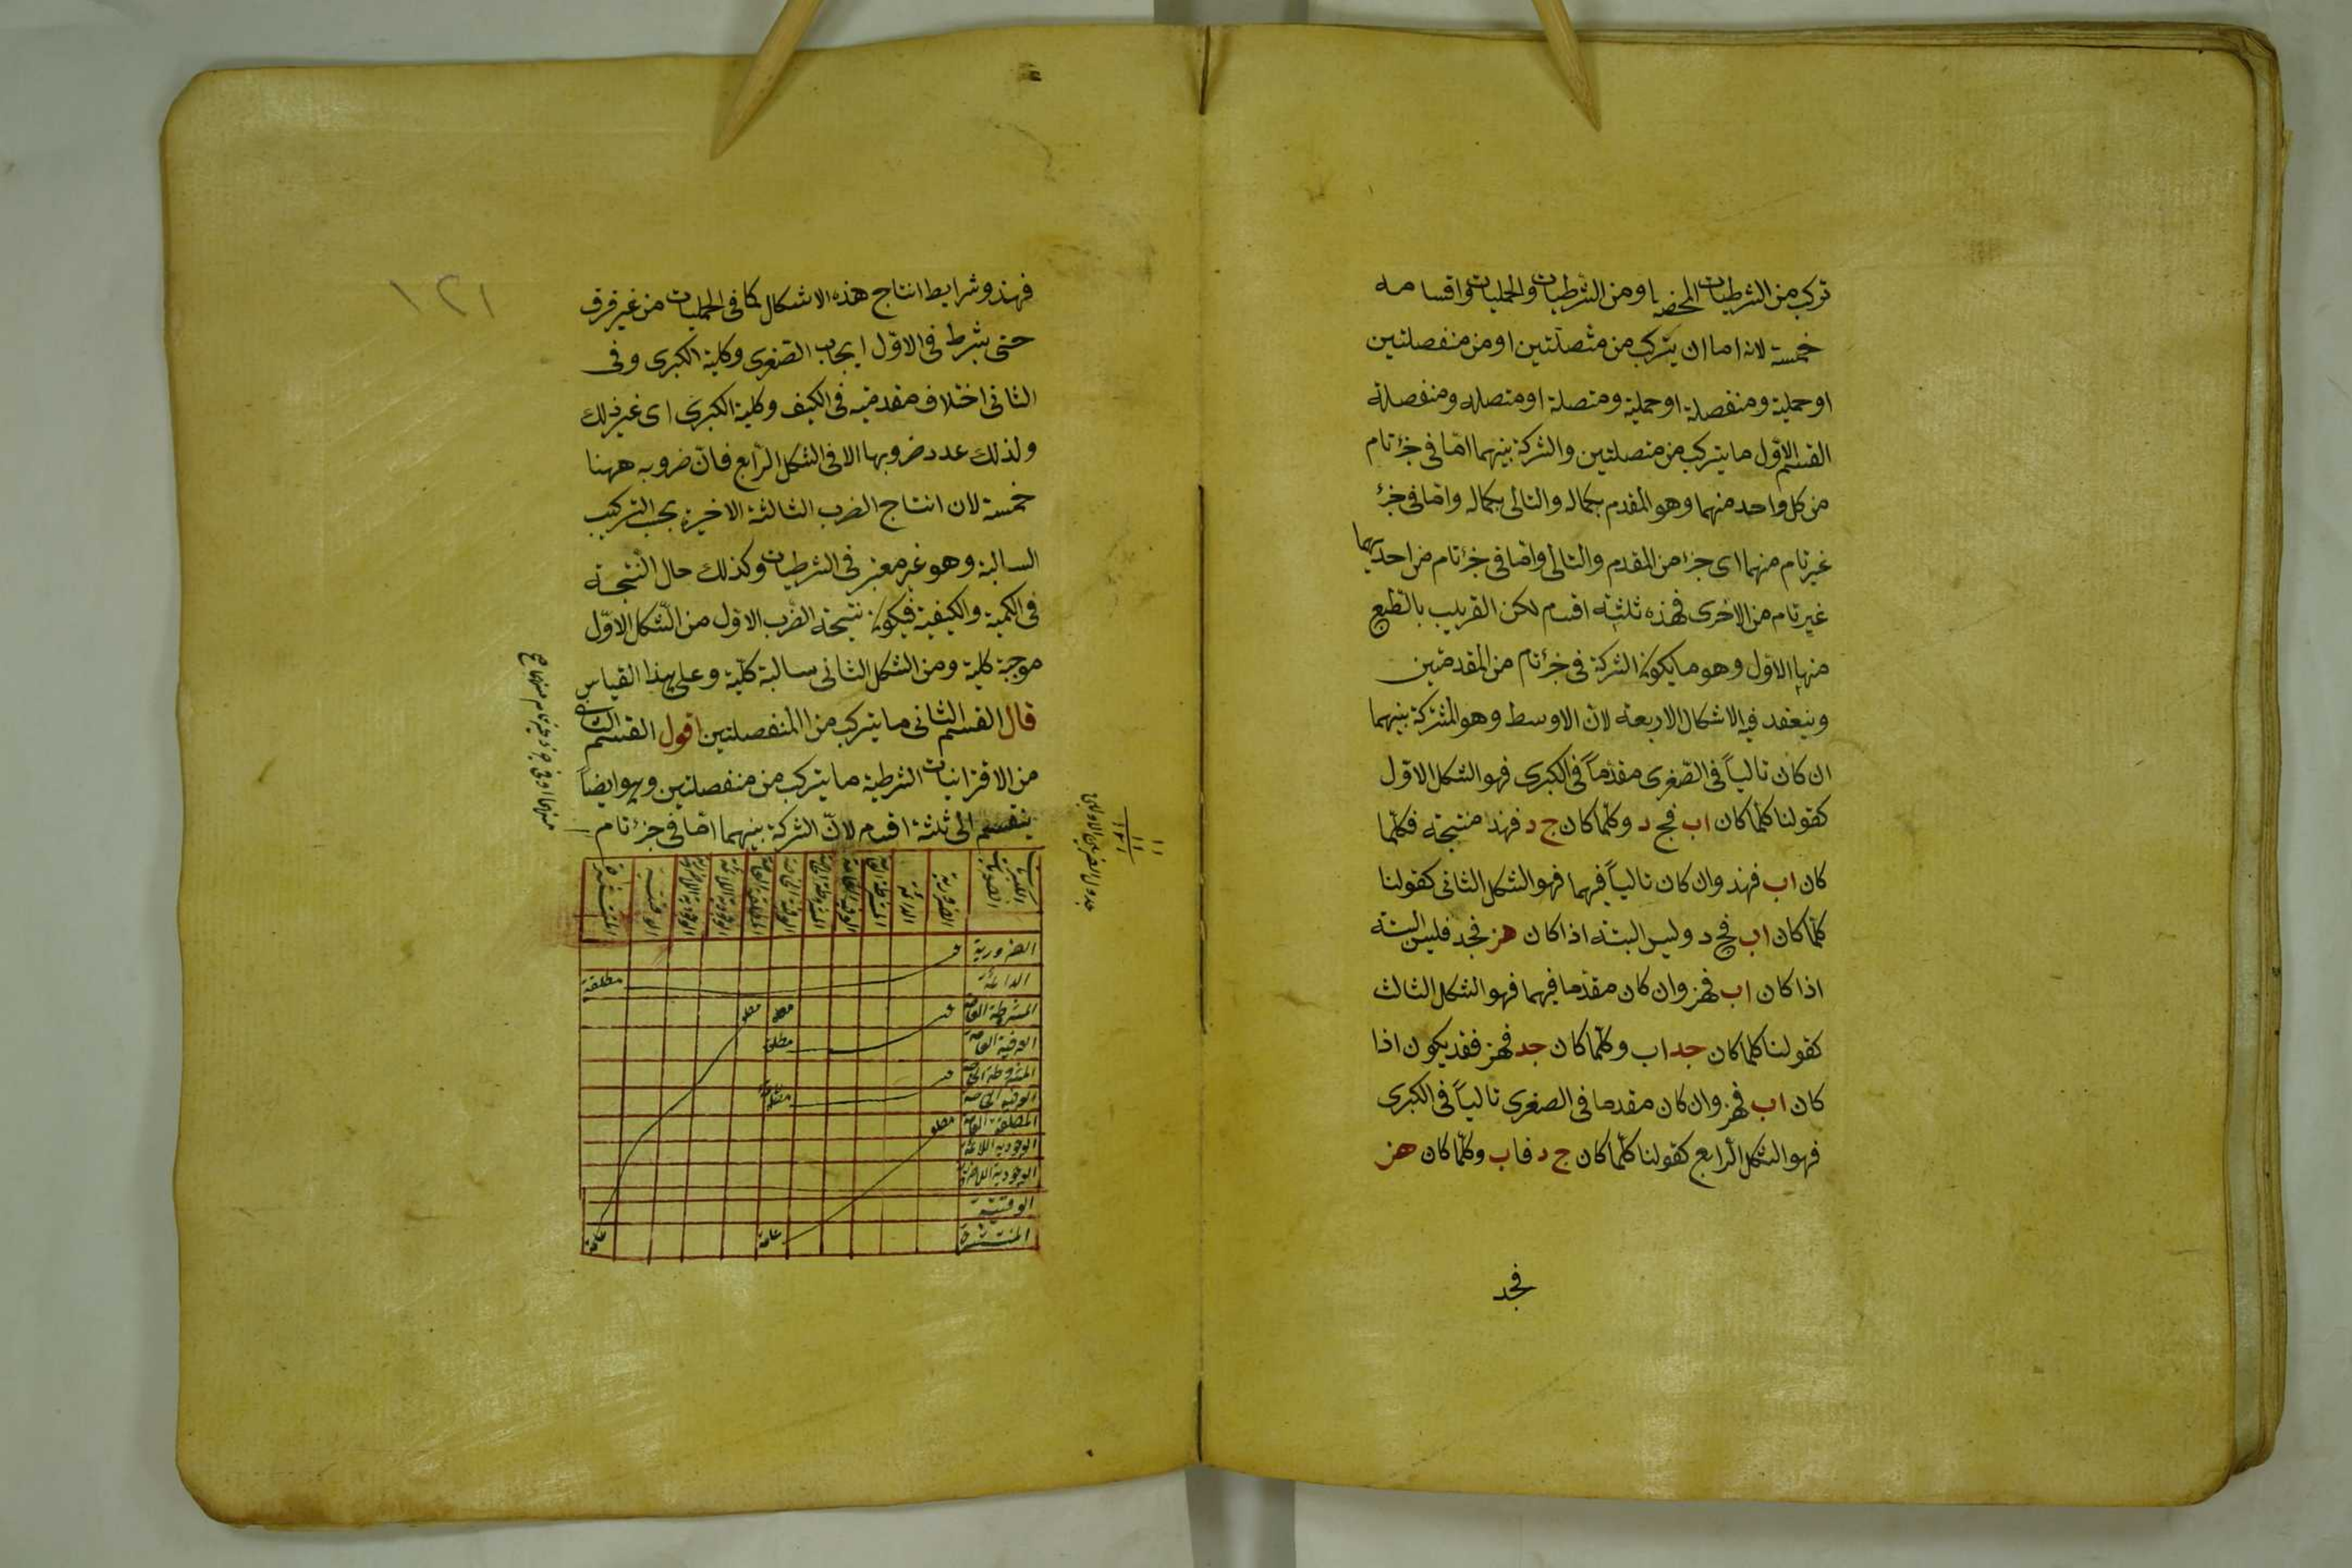 تركب من الشرطيات المحضة او من الشرطيات والحمليات واقسامه
خمسة لانه اما ان يتركب من متصلتين او من منفصلتين
او حملية ومنفصلة او حملية ومتصلة او متصله ومنفصلة
القسم الاوّل ما يتركب من متصلتين والشركة بينهما امّا فى جزء تام
من كل واحد منهما وهو المقدم بكماله والتالى بكماله واما فى جزء
غير تام منهما اى جزء من المقدم والتالى واما فى جزء تام من احديهما
غير تام من الاخرى فهذه ثلثة اقسام لكن القريب بالطبع
منها الاوّل وهو ما يكون الشركة فى جزء تام من المقدمتين
وينعقد فيه الاشكال الاربعة لانّ الاوسط وهو المشترك بينهما
ان كان تالياً فى الصّغرى مقدّماً فى الكبرى فهو الشكل الاوّل
كقولنا كلّما كان اب فج د وكلّما كان ج د فهذ منتجة فكلّما
كان اب فهذ وان كان تالياً فيهما فهو الشكل الثانى كقولنا
كلّما كان اب فج د وليس البتة اذا كان هز فجد فليس البتة
اذا كان اب فهز وان كان مقدّما فيهما فهو الشكل الثالث
كقولنا كلما كان جد اب وكلّما كان جد فهز فقد يكون اذا
كان اب فهز وان كان مقدما فى الصغرى تالياً فى الكبرى
فهو الشكل الرّابع كقولنا كلّما كان ج د فاب وكلّما كان هز
فجد
١٢١
فهذ وشرايط انتاج هذه الاشكال كما فى الحمليات من غير فرق
حتى يشرط فى الاوّل ايجاب الصّغرى وكلية الكبرى وفى
الثانى اختلاف مقدمتيه فى الكيف وكلية الكبرى اى غير ذلك
ولذلك عدد ضروبها الا فى الشكل الرّابع فانّ ضروبه ههنا
خمسة لان انتاج الضرب الثالثة الاخيرة بحسب التركيب
السالبة وهو غير معتبر فى الشرطيات وكذلك حال النتيجة
فى الكمية والكيفية فيكون نتيجة الضّرب الاوّل من الشّكل الاوّل
موجبة كلية ومن الشكل الثانى سالبة كلّية وعلى هذا القياس
قال القسم الثانى ما يتركب من المنفصلتين اقول القسم الثانى
من الاقترانيات الشرطية ما يتركب من منفصلتين وهو ايضاً
ينقسم الى ثلثة اقسام لانّ الشركة بينهما امّا فى جزء تام
منهما او فى جزء غير تام منهما
الضرورية الدائمة
المطلقة العامة
الوقتية المنتشرة
الضرورية
الدائمة مطلقة
المشروطة العامة
العرفية العامة مطلقة
المشروطة الخاصة
العرفية الخاصة
المطلقة العامة
الوجودية اللادائمة
الوجودية اللاضرورية
الوقتية
المنتشرة عامة عامة